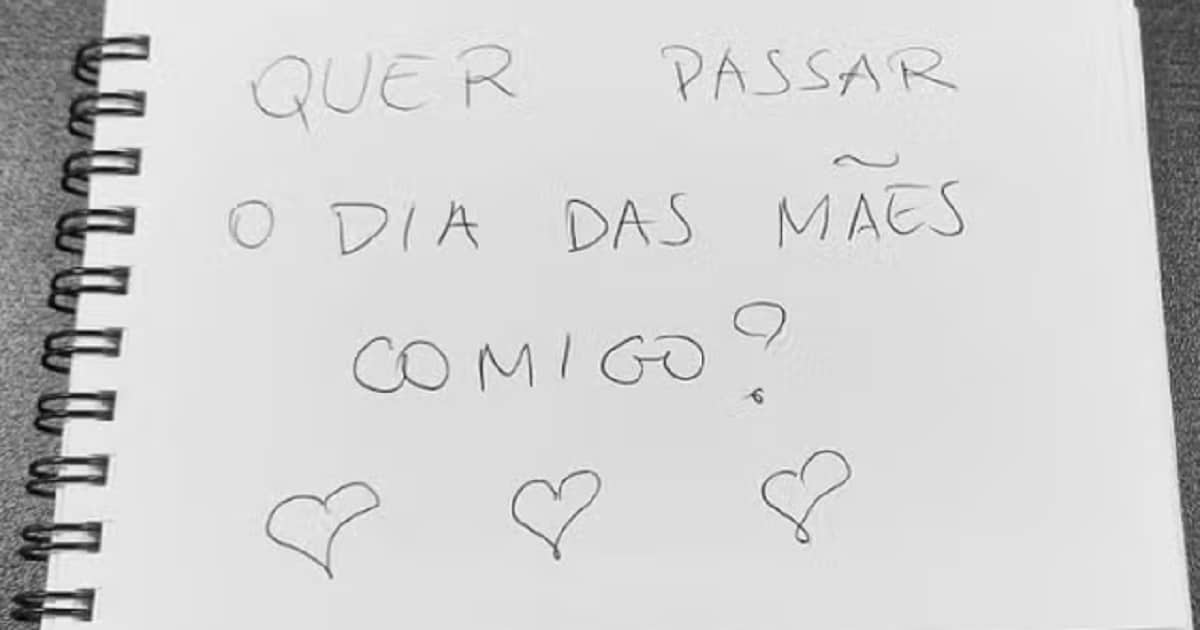 QUER PASSAR
O DIA DAS MÃES
COMIGO?